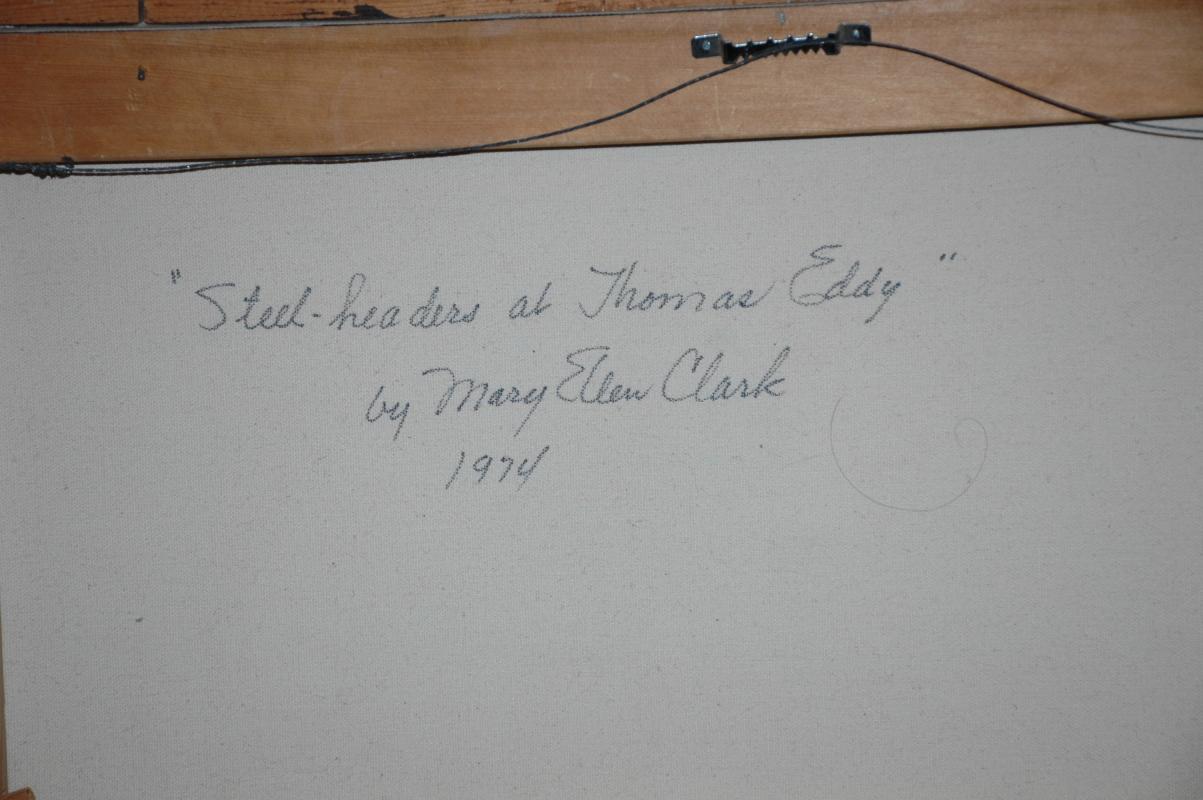 "Steel-headers at Thomas Eddy"
by Mary Ellen Clark
1974